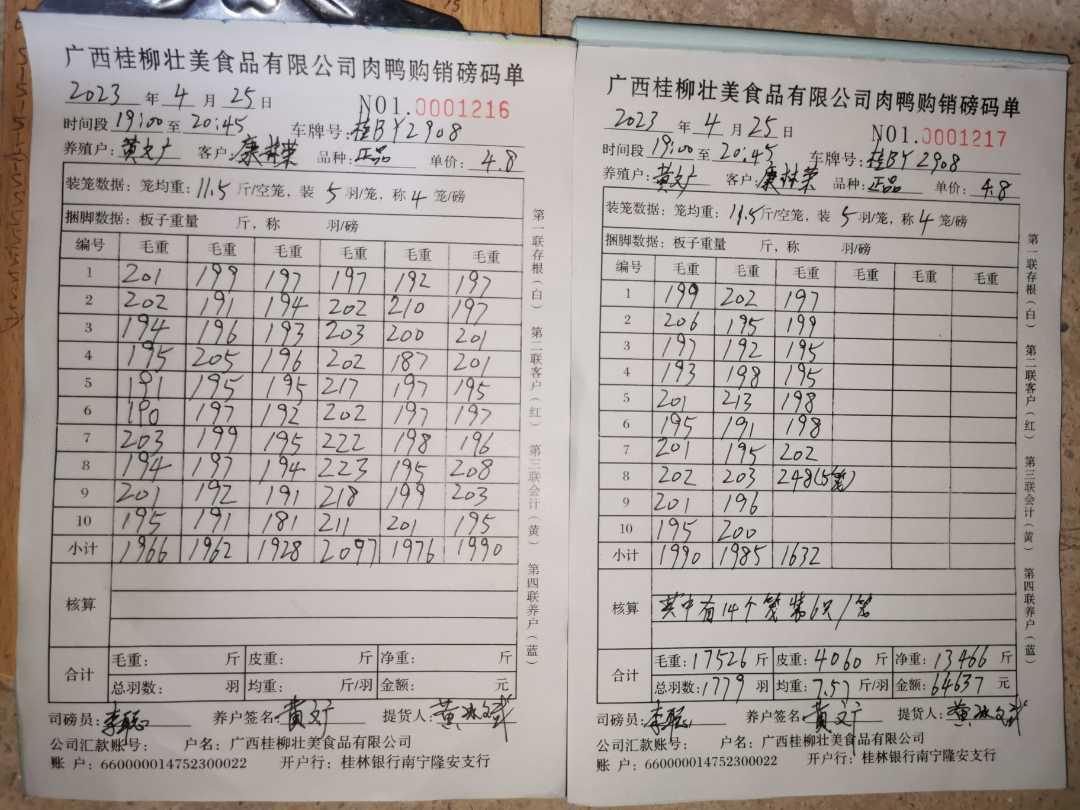 广西桂柳壮美食品有限公司肉鸭购销磅码单
2023 年 4 月 25 日 NO1.0001216
时间段 19:00 至 20:45 车牌号:桂BY2908
养殖户:黄文广 客户:康林荣 品种:正品 单价:4.8
装笼数据:笼均重:11.5斤/空笼,装 5 羽/笼,称 4 笼/磅
捆脚数据:板子重量 斤,称 羽/磅
编号 毛重 毛重 毛重 毛重 毛重 毛重
1 201 199 197 197 192 197
2 202 191 194 202 210 197
3 194 196 193 203 200 201
4 195 205 196 202 187 201
5 191 195 195 217 197 195
6 190 197 192 202 197 197
7 203 199 195 222 198 196
8 194 197 194 223 195 208
9 201 192 191 218 199 203
10 195 191 181 211 201 195
小计 1966 1962 1928 2097 1976 1990
核算
合计 毛重: 斤 皮重: 斤 净重: 斤
总羽数: 羽 均重: 斤/羽 金额: 元
司磅员:李聪 养户签名:黄文广 提货人:黄
公司汇款账号: 户名:广西桂柳壮美食品有限公司
账 户:660000014752300022 开户行:桂林银行南宁隆安支行
第一联存根(白) 第二联客户(红) 第三联会计(黄) 第四联养户(蓝)
广西桂柳壮美食品有限公司肉鸭购销磅码单
2023 年 4 月 25 日 NO1.0001217
时间段 19:00 至 20:45 车牌号:桂BY2908
养殖户:黄文广 客户:康林荣 品种:正品 单价:4.8
装笼数据:笼均重:11.5斤/空笼,装 5 羽/笼,称 4 笼/磅
捆脚数据:板子重量 斤,称 羽/磅
编号 毛重 毛重 毛重 毛重 毛重 毛重
1 199 202 197
2 206 195 199
3 197 192 195
4 193 198 195
5 201 213 198
6 195 191 198
7 201 195 202
8 202 203 248(5笼)
9 201 196
10 195 200
小计 1990 1985 1632
核算 其中有14个笼装6只/笼
合计 毛重:17526 斤 皮重:4060 斤 净重:13466 斤
总羽数:1779 羽 均重:7.57 斤/羽 金额:64637 元
司磅员:李聪 养户签名:黄文广 提货人:黄
公司汇款账号: 户名:广西桂柳壮美食品有限公司
账 户:660000014752300022 开户行:桂林银行南宁隆安支行
第一联存根(白) 第二联客户(红) 第三联会计(黄) 第四联养户(蓝)